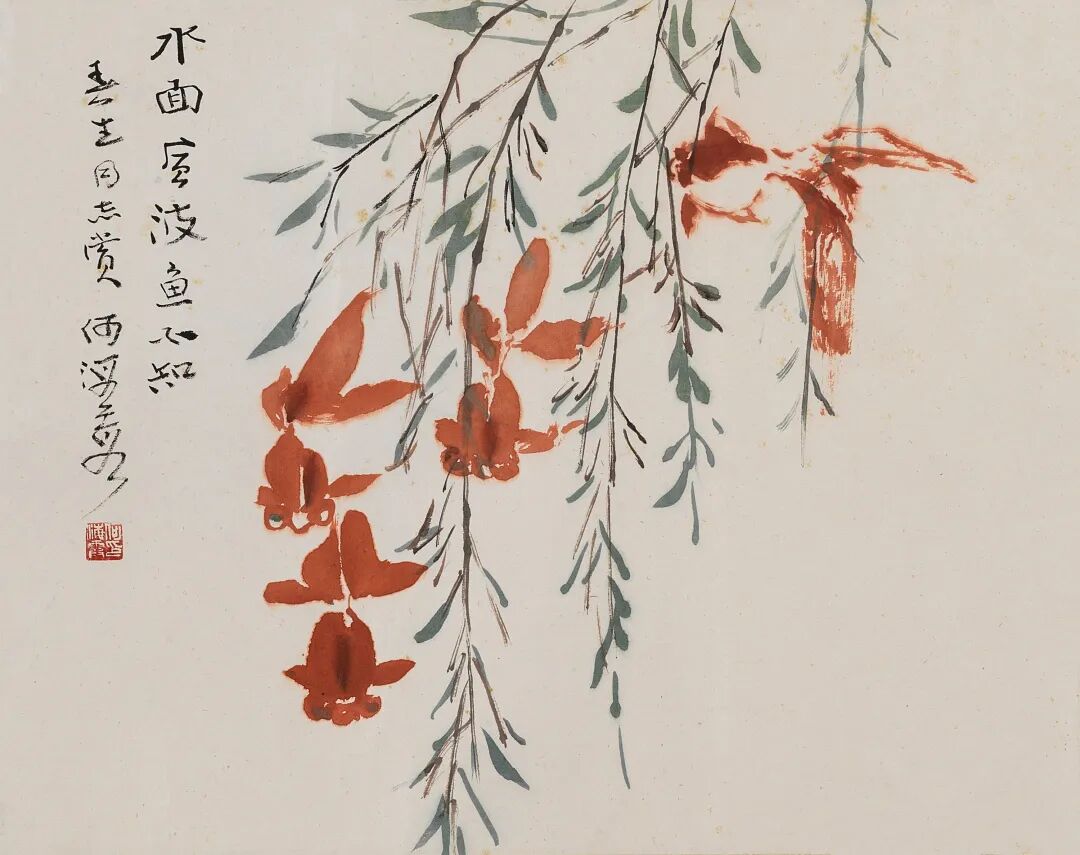 水面风波鱼不知
春生同志赏 何海霞
何印海霞